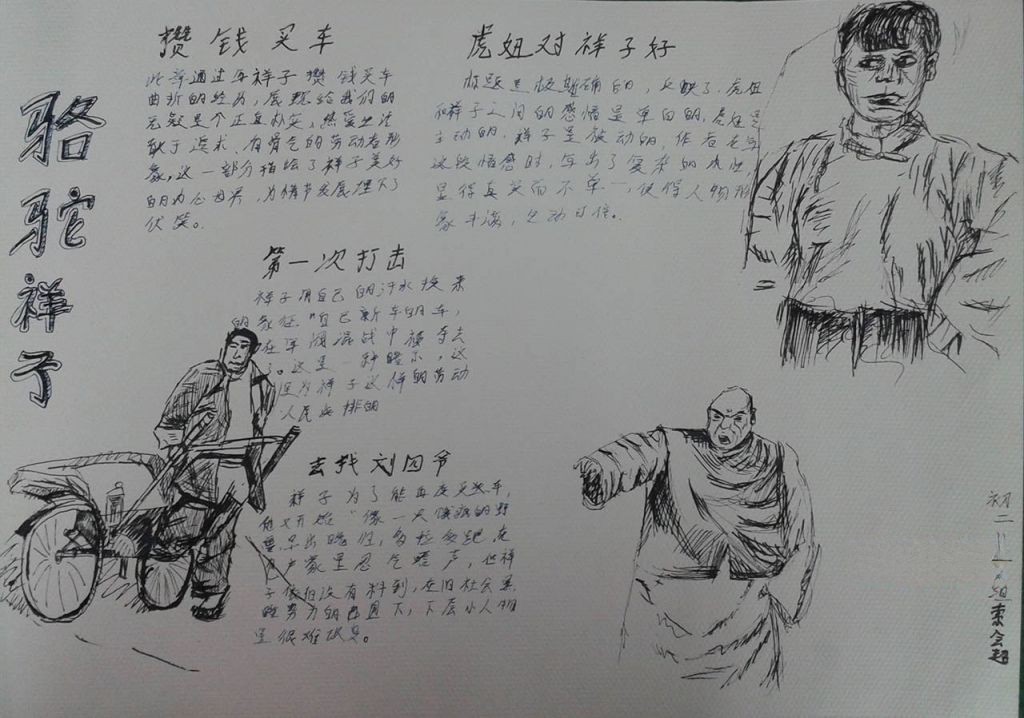 骆驼祥子
攒钱买车
此章通过写祥子攒钱买车
曲折的经历，展现给我们的
无疑是个正直朴实，热爱生活
敢于追求、有骨气的劳动者形
象，这一部分描绘了祥子美好
的内心世界，为情节发展埋下了
伏笔。
虎妞对祥子好
和祥子之间的感情是单向的，虎妞是
主动的，祥子是被动的，作者在写
这段情感时，写出了复杂的
显得真实而不单一，使得人物形
象丰满，生动可信。
第一次打击
祥子用自己的汗水换来
的象征“自己新车的车，
在军阀混战中被夺去
了。这是一种暗示，这
因为祥子这样的劳动
人民安排的
去找刘四爷
祥子为了能再度买张车，
他又开始“像一只饿疯的野
兽，早出晚归，多拉多跑，在
户家里忍气吞声，但祥
子依旧没有料到，在旧社会黑
暗势力的压迫下，下层小人物
是很难成
初二
索会超